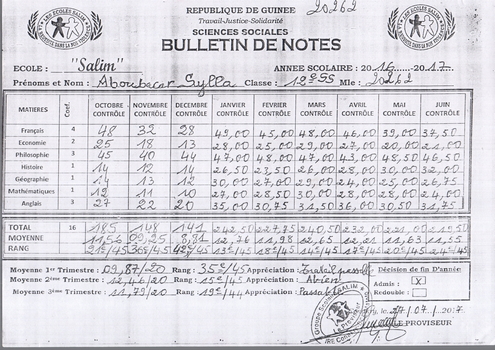 REPUBLIQUE DE GUINEE
20262
Travail-Justice-Solidarité
SCIENCES SOCIALES
BULLETIN DE NOTES
ECOLE : "Salim" ANNEE SCOLAIRE : 2016 2017
Prénoms et Nom : Aboubacar Sylla Classe : 12eSS Mle : 20262
MATIERES Coef. OCTOBRE CONTRÔLE NOVEMBRE CONTRÔLE DECEMBRE CONTRÔLE JANVIER CONTRÔLE FEVRIER CONTRÔLE MARS CONTRÔLE AVRIL CONTRÔLE MAI CONTRÔLE JUIN CONTRÔLE
Français 4 48 32 28 49,00 45,00 48,00 46,00 39,00 37,50
Economie 2 25 18 13 28,00 25,00 29,00 27,00 20,00 21,00
Philosophie 3 45 40 44 47,00 48,00 47,00 43,00 48,50 46,50
Histoire 1 14 12 14 26,50 23,50 26,00 28,00 30,00 32,00
Géographie 1 14 13 12 30,00 27,00 29,00 24,00 25,00 26,75
Mathématiques 1 12 11 10 27,00 28,50 30,00 28,00 28,00 24,00
Anglais 3 27 22 20 35,00 30,75 31,50 36,00 30,50 31,75
TOTAL 16 185 148 141 242,50 227,75 240,50 232,00 221,00
MOYENNE 11,56 09,25 8,81 12,76 11,98 12,65 12,21 11,63 11,55
RANG 21e/45 36e/45 42e/45
Moyenne 1er Trimestre : 09,87/20 Rang : 35e/45 Appréciation : Travail passable
Moyenne 2ème Trimestre : 12,46/20 Rang : 15e/45 Appréciation : A.bien
Moyenne 3ème Trimestre : 11,79/20 Rang : 19e/44 Appréciation : Passable
Décision de fin D'année
Admis : X
Redouble :
27/07/2017
LE PROVISEUR